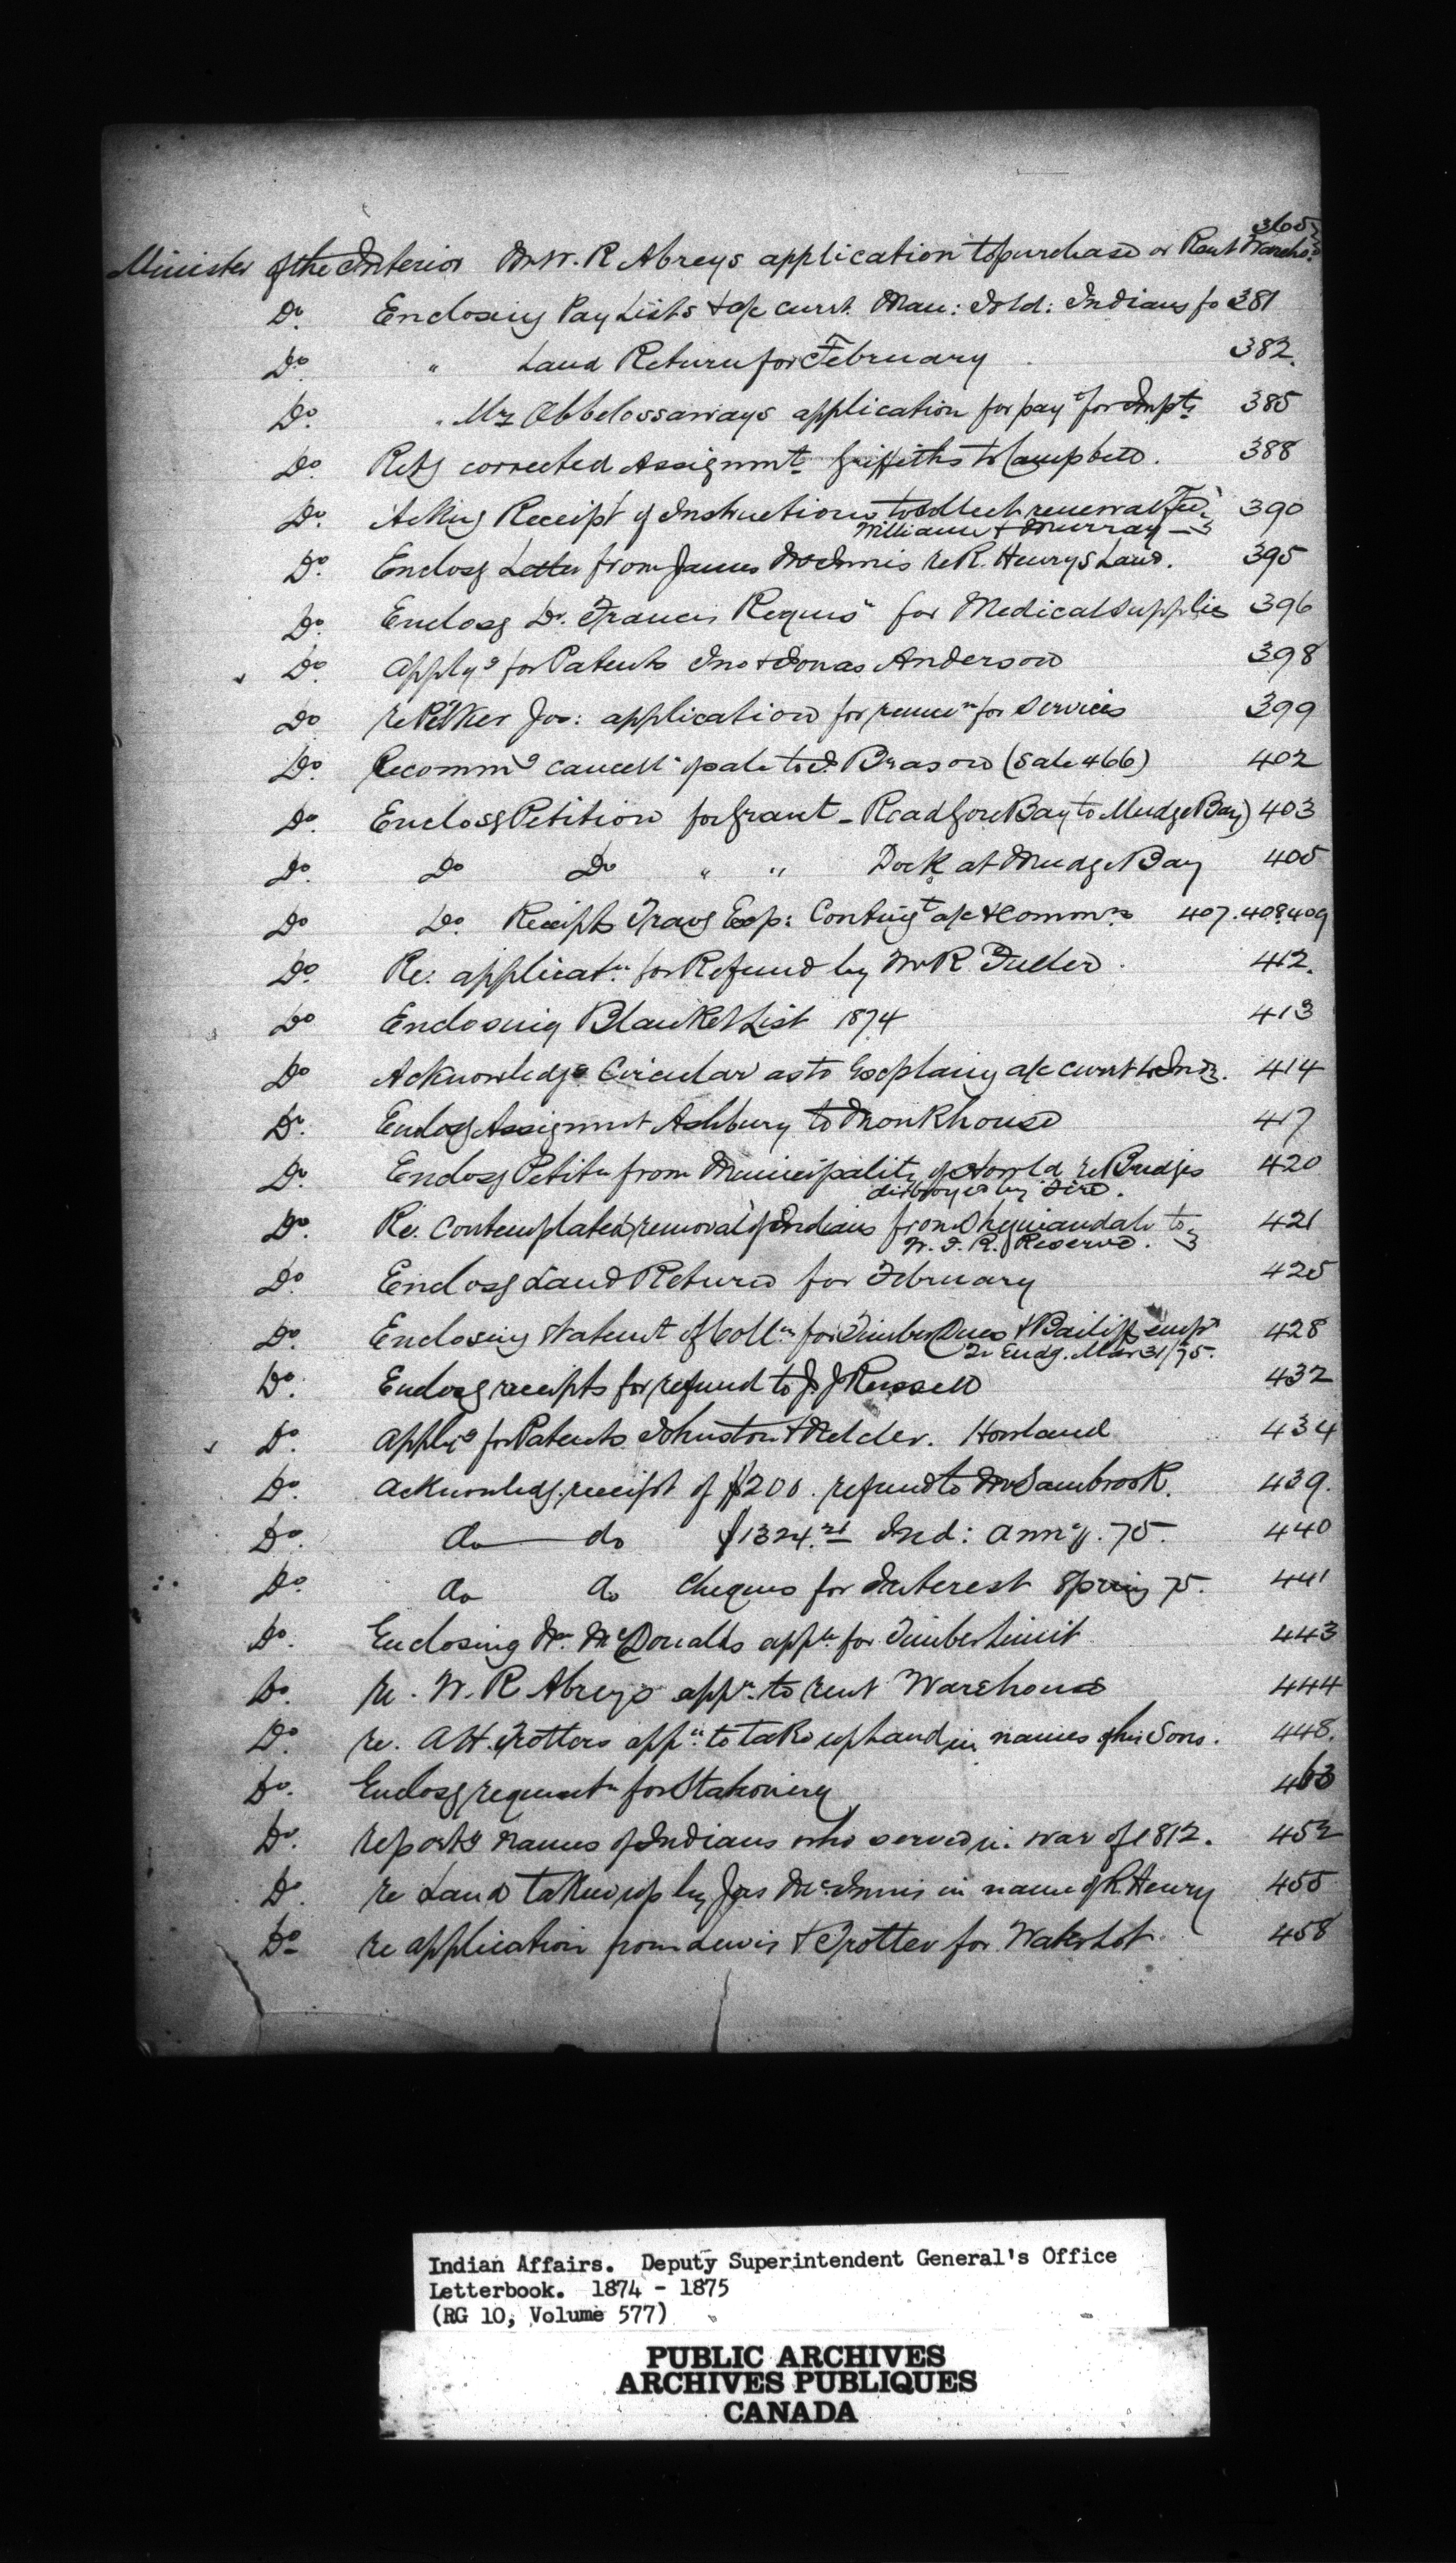 Minister of the Interior Mr W. R Abreys application to purchase or Rent Wareho: 365
Do. Enclosing Pay Lists & a/c curt. Man: Isld: Indians fo 381
Do. " Land Return for February 382.
Do. " Mr Obbelossaways application for payt for Impts 385
Do. Retg corrected Assignmt Griffiths to Campbell. 388
Do. Ackng Receipt of Instructions to collect renewal Fee 390
William & Murray
Do. Enclosg Letter from James McInnis re R. Henrys Land. 395
Do. Enclosg Dr. Francis Requisn for Medical supplies 396
Do. Applyg for Patents Jno & Jonas Anderson 398
Do. re Jos: application for remun for Services 399
Do. Recommg cancelln of sale to Brason (Sale 466) 402
Do. Enclosg Petition for Grant - Road Gore Bay to Mudge Bay) 403
Do. Do Do " " Dock at Mudge Bay 405
Do Do. Receipts Travg Exp: Contingt a/c & Commn 407. 408. 409
Do. Re. applicatn for Refund by W R Fuller. 412.
Do Enclosing Blanket List 1874 413
Do Acknowledge Circular as to Explaing a/c currt to Inds. 414
Do. Enclosg Assignmt Ashbury to Monkhouse 417
Do. Enclosg Petitn from Municipality of Howld re Bridges 420
destroyed by Fire.
Do. Re. Contemplated removal of Indians from Sheguiandah to 421
W. F. R. Reserve.
Do. Enclosg Land Return for February 425
Do. Enclosing Statemt of Colln for Timber Dues & Bailiffs 428
Qr Endg. Mar 31/75.
Do. Enclosg receipts for refund to J. J Russell 432
Do. Applyg for Patents Johnston & Nelder. Howland 434
Do. Acknowledg. receipt of $200. refund to Mr Sambrook. 439.
Do. do do $1324.21 Ind: anny. 75. 440
Do. do do Cheques for Interest Spring 75. 441
Do. Enclosing Wm McDonalds appn for Timber Limit 443
Do. re. W. R Abreys appn to rent Warehouse 444
Do. re. A H. Trotters appn to take up Land in names of his Sons. 448.
Do. Enclosg requisitn for Stationery
Do. reportg names of Indians who served in war of 1812. 452
Do re Land taken up by Jas McInnis in name of R Henry 455
Do re application from Lewis & Trotter for Water Lot 458
Indian Affairs. Deputy Superintendent General's Office
Letterbook. 1874 - 1875
(RG 10, Volume 577)
PUBLIC ARCHIVES
ARCHIVES PUBLIQUES
CANADA